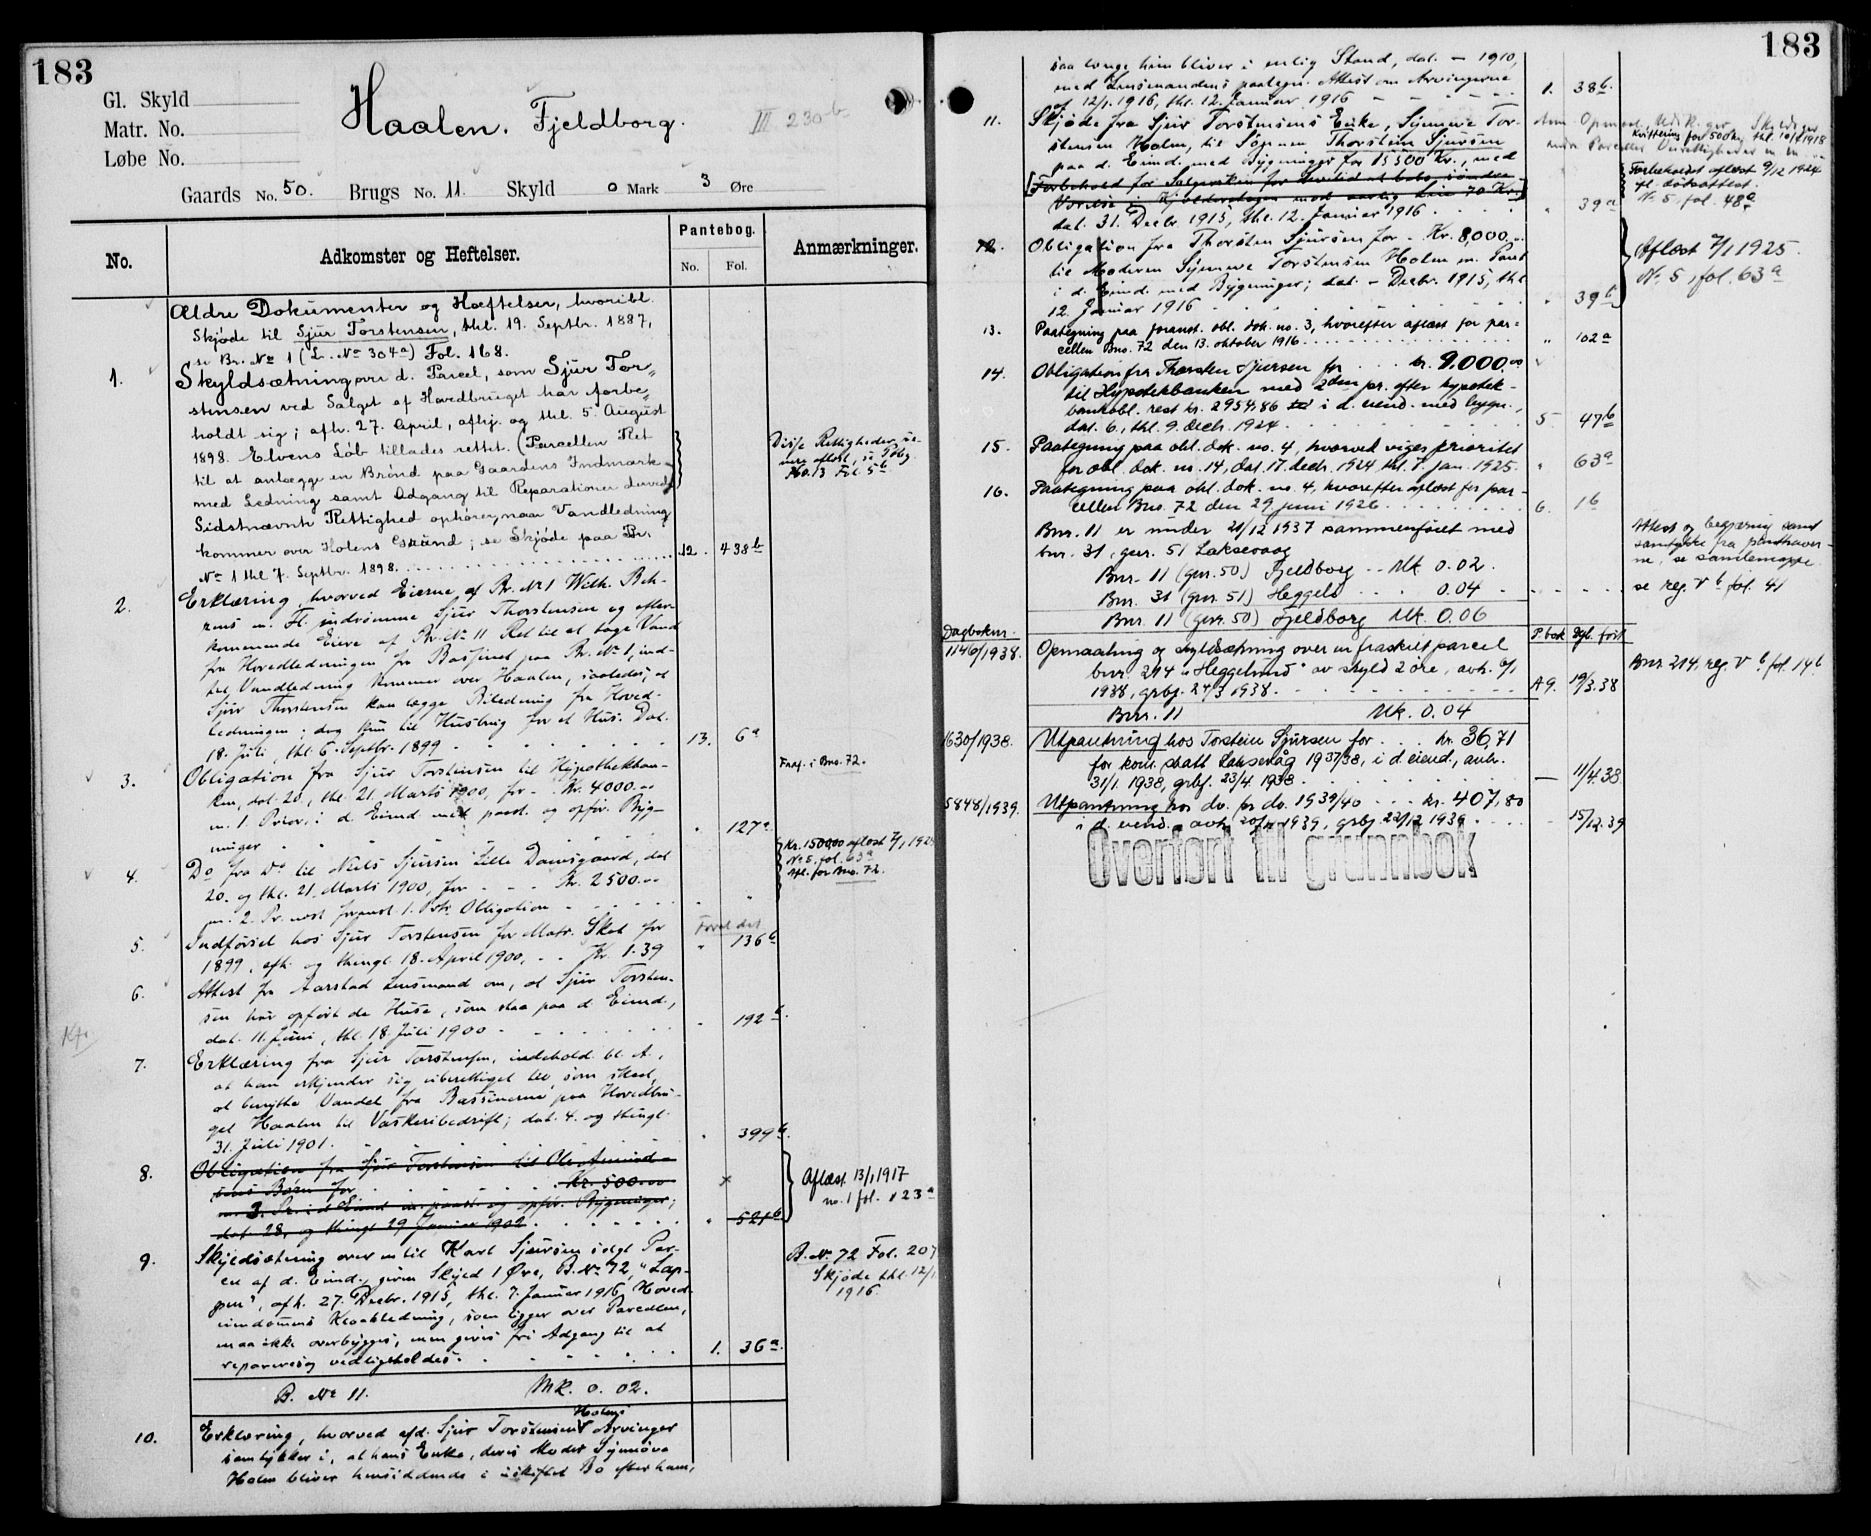 183
Gl. Skyld
Matr. No.
Løbe No.
Haalen. Fjeldborg.
III 230 b
Gaards No. 50. Brugs No. 11. Skyld 0 Mark 3 Øre
No.
Adkomster og Heftelser.
Pantebog.
No. Fol.
Anmærkninger.
Ældre Dokumenter og Hæftelser, hvoribl.
Skjøde til Sjur Torstensen, thl. 19. Septbr. 1887,
se Br. No 1 (L. No 304a) Fol. 168.
1. Skyldsætning over d. Parcel, som Sjur Tor=
stensen ved Salget af Hovedbruget har forbe=
holdt sig; afh. 27. April, afhj. og thl. 5. August
1898. Elvens Løb tillades rettet. (Parcellen Ret
til at anlægge en Brønd paa Gaardens Indmark
med Ledning samt Adgang til Reparationer derved)
Sidstnævnte Rettighed ophører, naar Vandledning
kommer over Holens Grund; se Skjøde paa Br.
No 1 thl. 7. Septbr. 1898. 12. 438 b
Disse Rettigheder se-
nere afløst, se Pbg.
No. 13 Fol. 5 b
2. Erklæring, hvorved Eierne af Br. No 1 Wilh. Beh-
rens m. Fl. indrømme Sjur Thorstensen og efter-
kommende Eiere af Br. No 11 Ret til at tage Vand
fra Hovedledningen fra Bassinet paa Br. No 1, ind-
til Vandledning kommer over Haalen, saaledes, at
Sjur Thorstensen kan lægge Biledning fra Hoved-
ledningen; dog kun til Husbrug for et Hus. Dat.
18. Juli, thl. 6. Septbr. 1899 13. 6 a
3. Obligation fra Sjur Torstensen til Hypothekban-
ken, dat. 20., thl. 21. Marts 1900, for Kr. 4000.00
m. 1. Prior. i d. Eiend med paast. og opfør. Byg-
ninger " 127 a
Fraf. i Bno. 72.
4. Do fra Do til Niels Sjursen Lille Damsgaard, dat
20. og thl. 21. Marts 1900, for Kr. 2500.00
m. 2. Pr. næst foranst. 1. Pr. Obligation " "
Kr. 1500.00 afløst 7/1 1925
No 5. fol. 63 a
Afl. for Bno. 72.
5. Indførsel hos Sjur Torstensen for Matr. Skat for
1899, afh. og thingl. 18. April 1900, Kr. 1.39 " 136 b
6. Attest fra Aarstad Lensmand om, at Sjur Torsten-
sen har opført de Huse, som staa paa d. Eiend.,
dat. 11. Juni, thl. 18. Juli 1900 " 192 b
7. Erklæring fra Sjur Torstensen, indehold. bl. A.,
at han erkjender sig uberettiget til, som skeet,
at benytte Vandet fra Bassinerne paa Hovedbru-
get Haalen til Vaskeribedrift; dat. 4. og thingl.
31. Juli 1901. " 399 b.
8. Obligation fra Sjur Torstensen til Ole Amund-
sens Børn for Kr. 500.00
m. 3. Pr. i d. Eiend m. paast. og opfør. Bygninger;
dat. 28. og thingl. 29. Januar 1902. " 521 b
Aflæst 13/1 1917
no. 1 fol. 123 a
9. Skyldsætning over en til Karl Sjursen solgt Par-
cel af d. Eiend., given Skyld 1 Øre, B. No 72, "Lap-
pen", afh. 27. Decbr. 1915, thl. 7. Januar 1916. Hoved-
eiendommens Kloakledning, som ligger over Parcellen,
maa ikke overbygges, men gives fri Adgang til at
repareres og vedligeholdes. 1. 36 a.
B. No. 72 Fol. 207
Skjøde thl. 12/1
1916.
B. No 11. Mk. 0. 02.
10. Erklæring, hvorved afd. Sjur Torstensens Holms Arvinger
samtykker i, at hans Enke, deres Moder Synnøve
Holm bliver hensiddende i uskiftet Bo efter ham,
183
saa længe hun bliver i enlig Stand, dat. – 1910,
med Lensmandens paategn. Attest om Arvingerne
af 12/1. 1916, thl. 12. Januar 1916 1. 38 b.
11. Skjøde fra Sjur Torstensens Enke, Synneve Tor-
stensen Holm, til Sønnen Thorstein Sjursen
paa d. Eiend. med Bygninger for 15500 Kr., med
dat. 31. Decbr. 1915, thl. 12. Januar 1916. " 39 a
Kvittering for 500 kr. thl. 1918
Forbeholdet afløst 9/12 1924
fl. dødsattest.
No 5, fol. 48 a
12. Obligation fra Thorsten Sjursen for Kr. 8,000.-
til Moderen Synneve Torstensen Holm m. Pant
i d. Eiend. med Bygninger; dat. – Decbr. 1915, thl.
12. Januar 1916 " 39 b
Afløst 7/1 1925.
No. 5, fol. 63 a
13. Paategning paa foranst. obl. dok. no. 3, hvorefter aflæst for par=
cellen Bno. 72 den 13. oktober 1916. " 102 a
14. Obligation fra Thorsten Sjursen for kr. 9.000.00
til Hypotekbanken med 2den pr. efter hypotek-
bankobl. rest kr. 2954.86 i d. eiend. med bygn.,
dat. 6., thl. 9. decb. 1924. 5 47 b
15. Paategning paa obl. dok. no. 4, hvorved viges prioritet
for obl. dok. no. 14, dat. 17. decb. 1924, thl. 7. jan. 1925. " 63 a
16. Paategning paa obl. dok. no. 4, hvorefter aflæst for par-
cellen Bno. 72 den 29. juni 1926. 6. 1 b
Bnr. 11 er under 21/12 1937 sammenføiet med
bnr. 31, gnr. 51 Laksevaag
Attest og begjæring samt
samtykke fra panthaver-
ne, se samlemappe.
Bnr. 11 (gnr. 50) Fjeldborg Mk 0.02.
Bnr. 31 (gnr. 51) Heggelo 0.04
se reg. V b fol. 41
Bnr. 11 (gnr. 50) Fjeldborg Mk 0.06
Dagboknr. P. bok Dgl. ført
1146/1938. Opmaaling og skyldsætning over en fraskilt parcel
bnr. 214 "Heggelund" av skyld 2 øre, avh. 6/1
1938, grbg. 24/3 1938. A 9. 19/3.38
Bnr. 214. reg. V b fol. 14 b
Bnr. 11 Mk. 0.04
1630/1938. Utpantning hos Torstein Sjursen for kr. 36,71
for kom. skatt Laksevåg 1937/38, i d. eiend., avh.
31/1. 1938, grbf. 23/4 1938. — 11/4.38
5848/1939. Utpantning hos do. for do. 1939/40 kr. 407,80
i d. eiend., avh. 20/11 1939, grbg. 22/12 1939 - 15/12.39
Overført til grunnbok